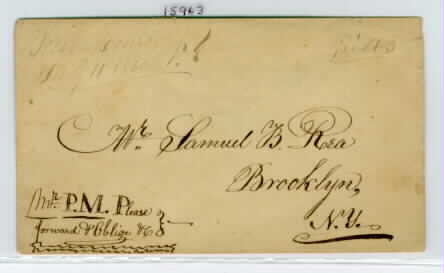 15963
Mr. Samuel B. Rea
Brooklyn,
N.Y.
Mr. P.M. Please
forward & Oblige &c